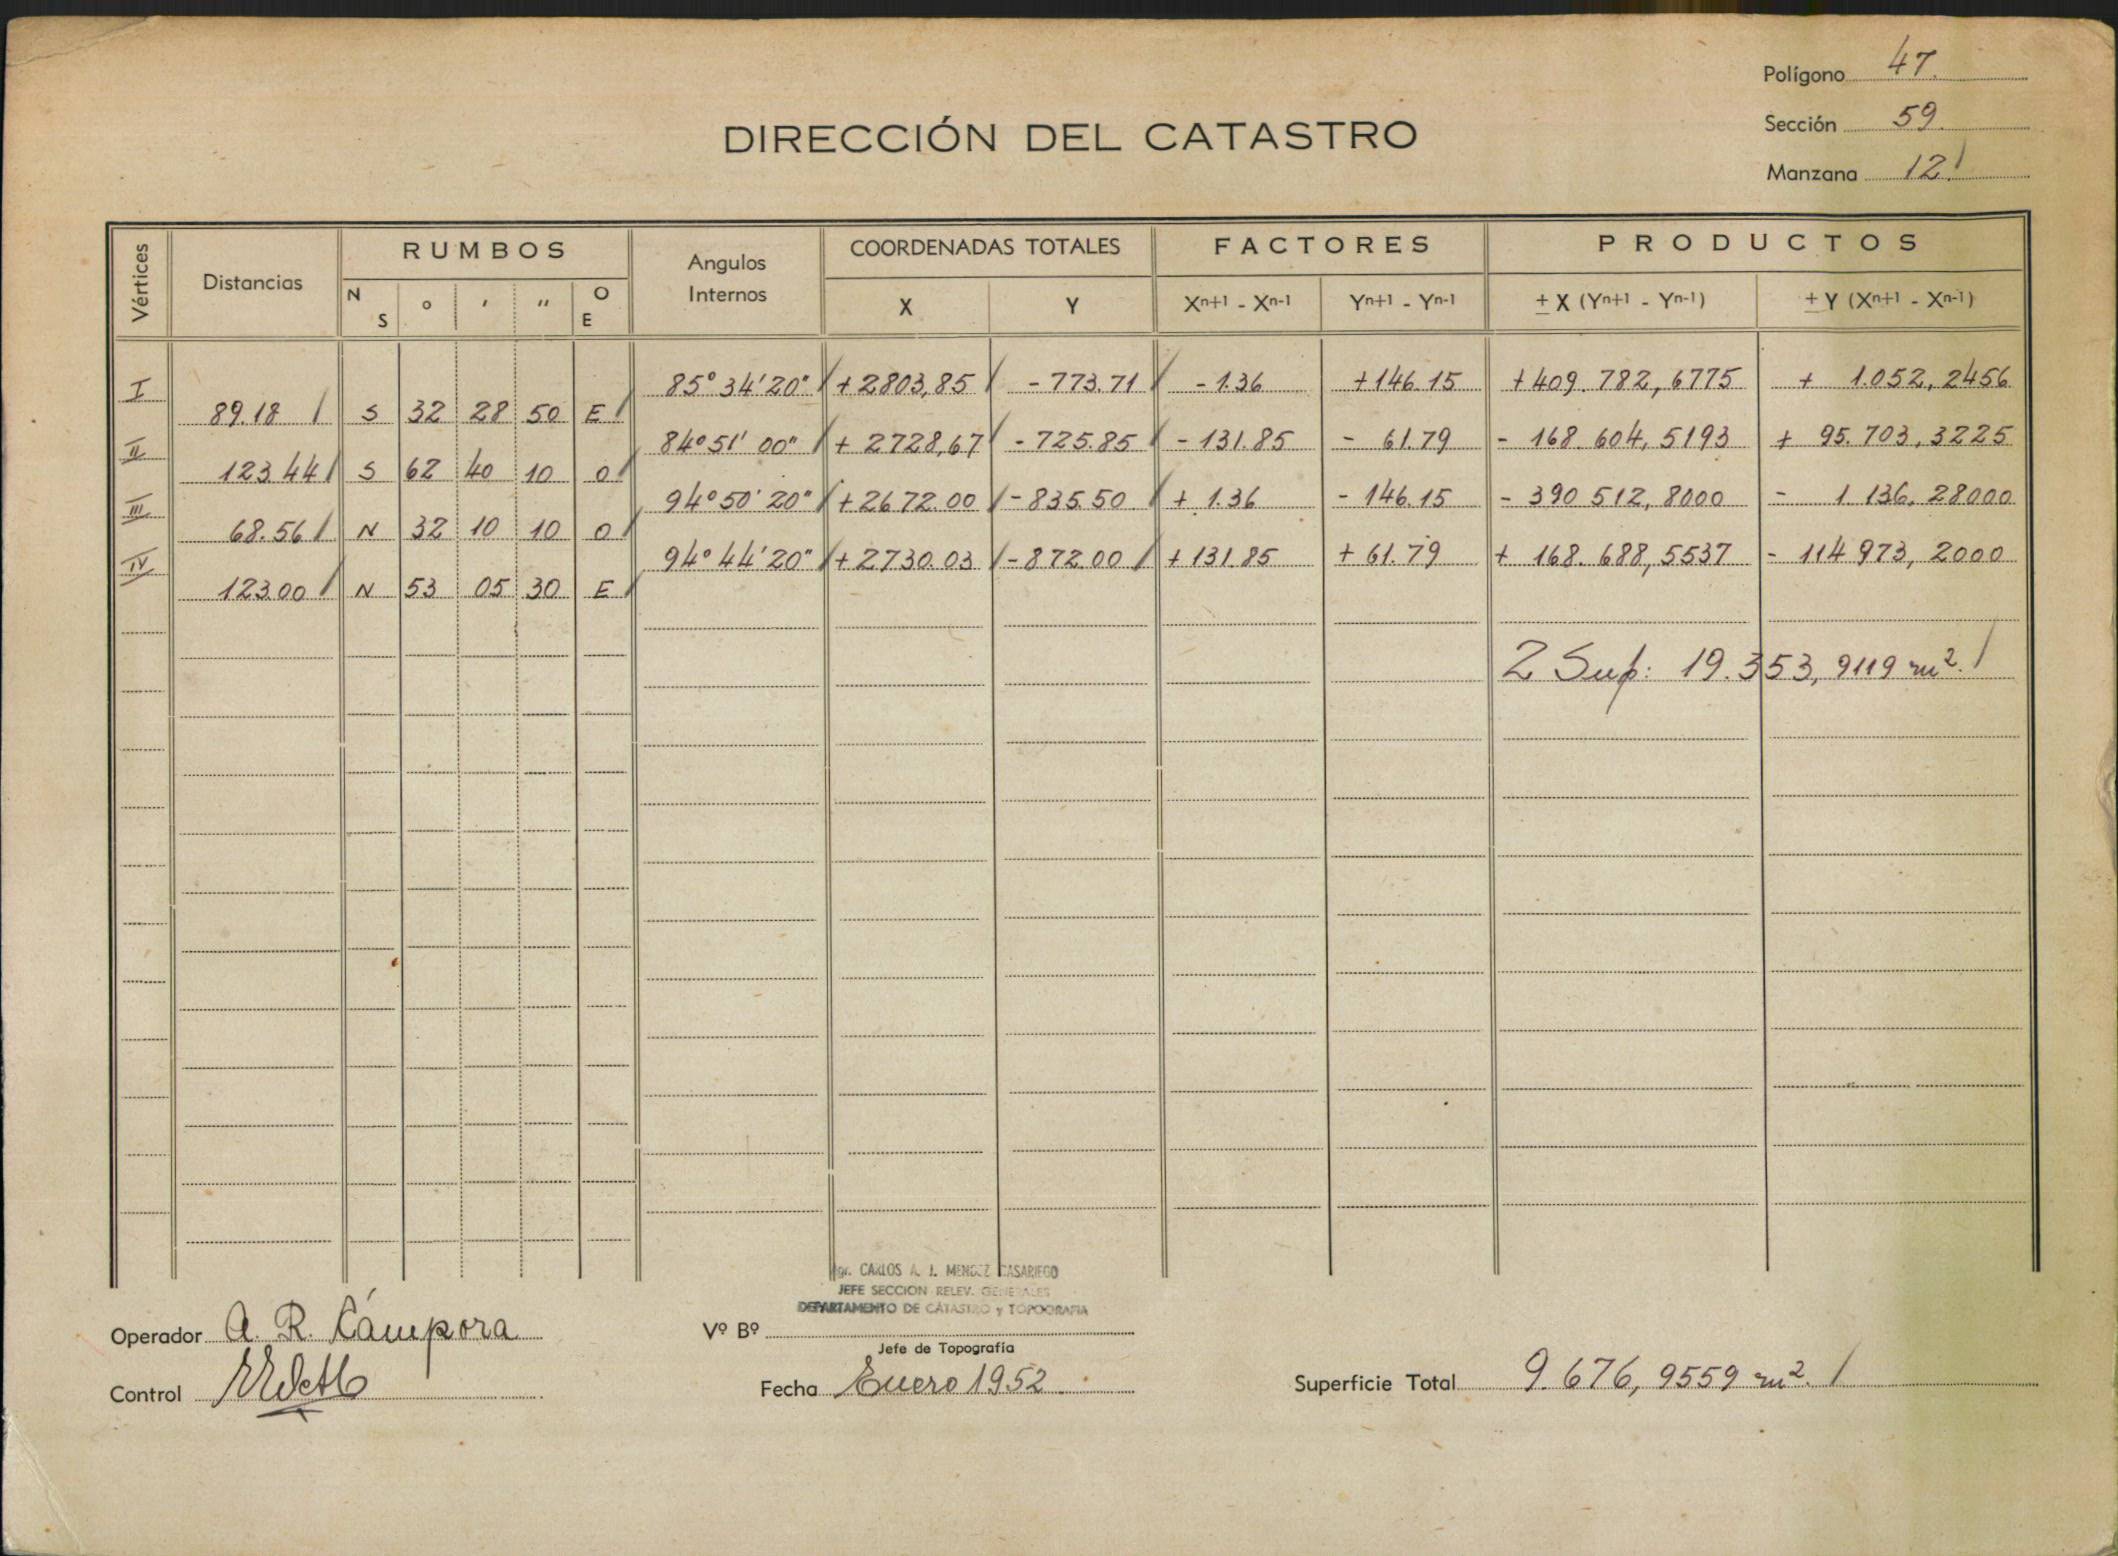 Polígono 47.
Sección 59.
Manzana 12. /
DIRECCIÓN DEL CATASTRO
Vértices Distancias RUMBOS Angulos Internos COORDENADAS TOTALES FACTORES PRODUCTOS
N S o ' " O E X Y Xn+1 - Xn-1 Yn+1 - Yn-1 ± X (Yn+1 - Yn-1) ± Y (Xn+1 - Xn-1)
I 85° 34' 20" / +2803,85 / - 773.71 / - 1.36 +146.15 +409.782,6775 + 1.052,2456
89.18 / S 32 28 50 E /
II 84° 51' 00" / + 2728,67 / - 725.85 / - 131.85 - 61.79 - 168.604,5193 + 95.703,3225
123.44 / S 62 40 10 O /
III 94° 50' 20" / +2672.00 / - 835.50 / + 1.36 - 146.15 - 390 512,8000 - 1 136.28000
68.56 / N 32 10 10 O /
IV 94° 44' 20" / +2730.03 / - 872.00 / + 131.85 + 61.79 + 168.688,5537 - 114 973,2000
123.00 / N 53 05 30 E /
2 Sup: 19.353,9119 m². /
Agr. CARLOS A. J. MENDEZ CASARIEGO
JEFE SECCION RELEV. GENERALES
DEPARTAMENTO DE CATASTRO y TOPOGRAFIA
Operador A. R. Cámpora
Vº Bº
Jefe de Topografía
Control
Fecha Enero 1952
Superficie Total 9.676,9559 m². /